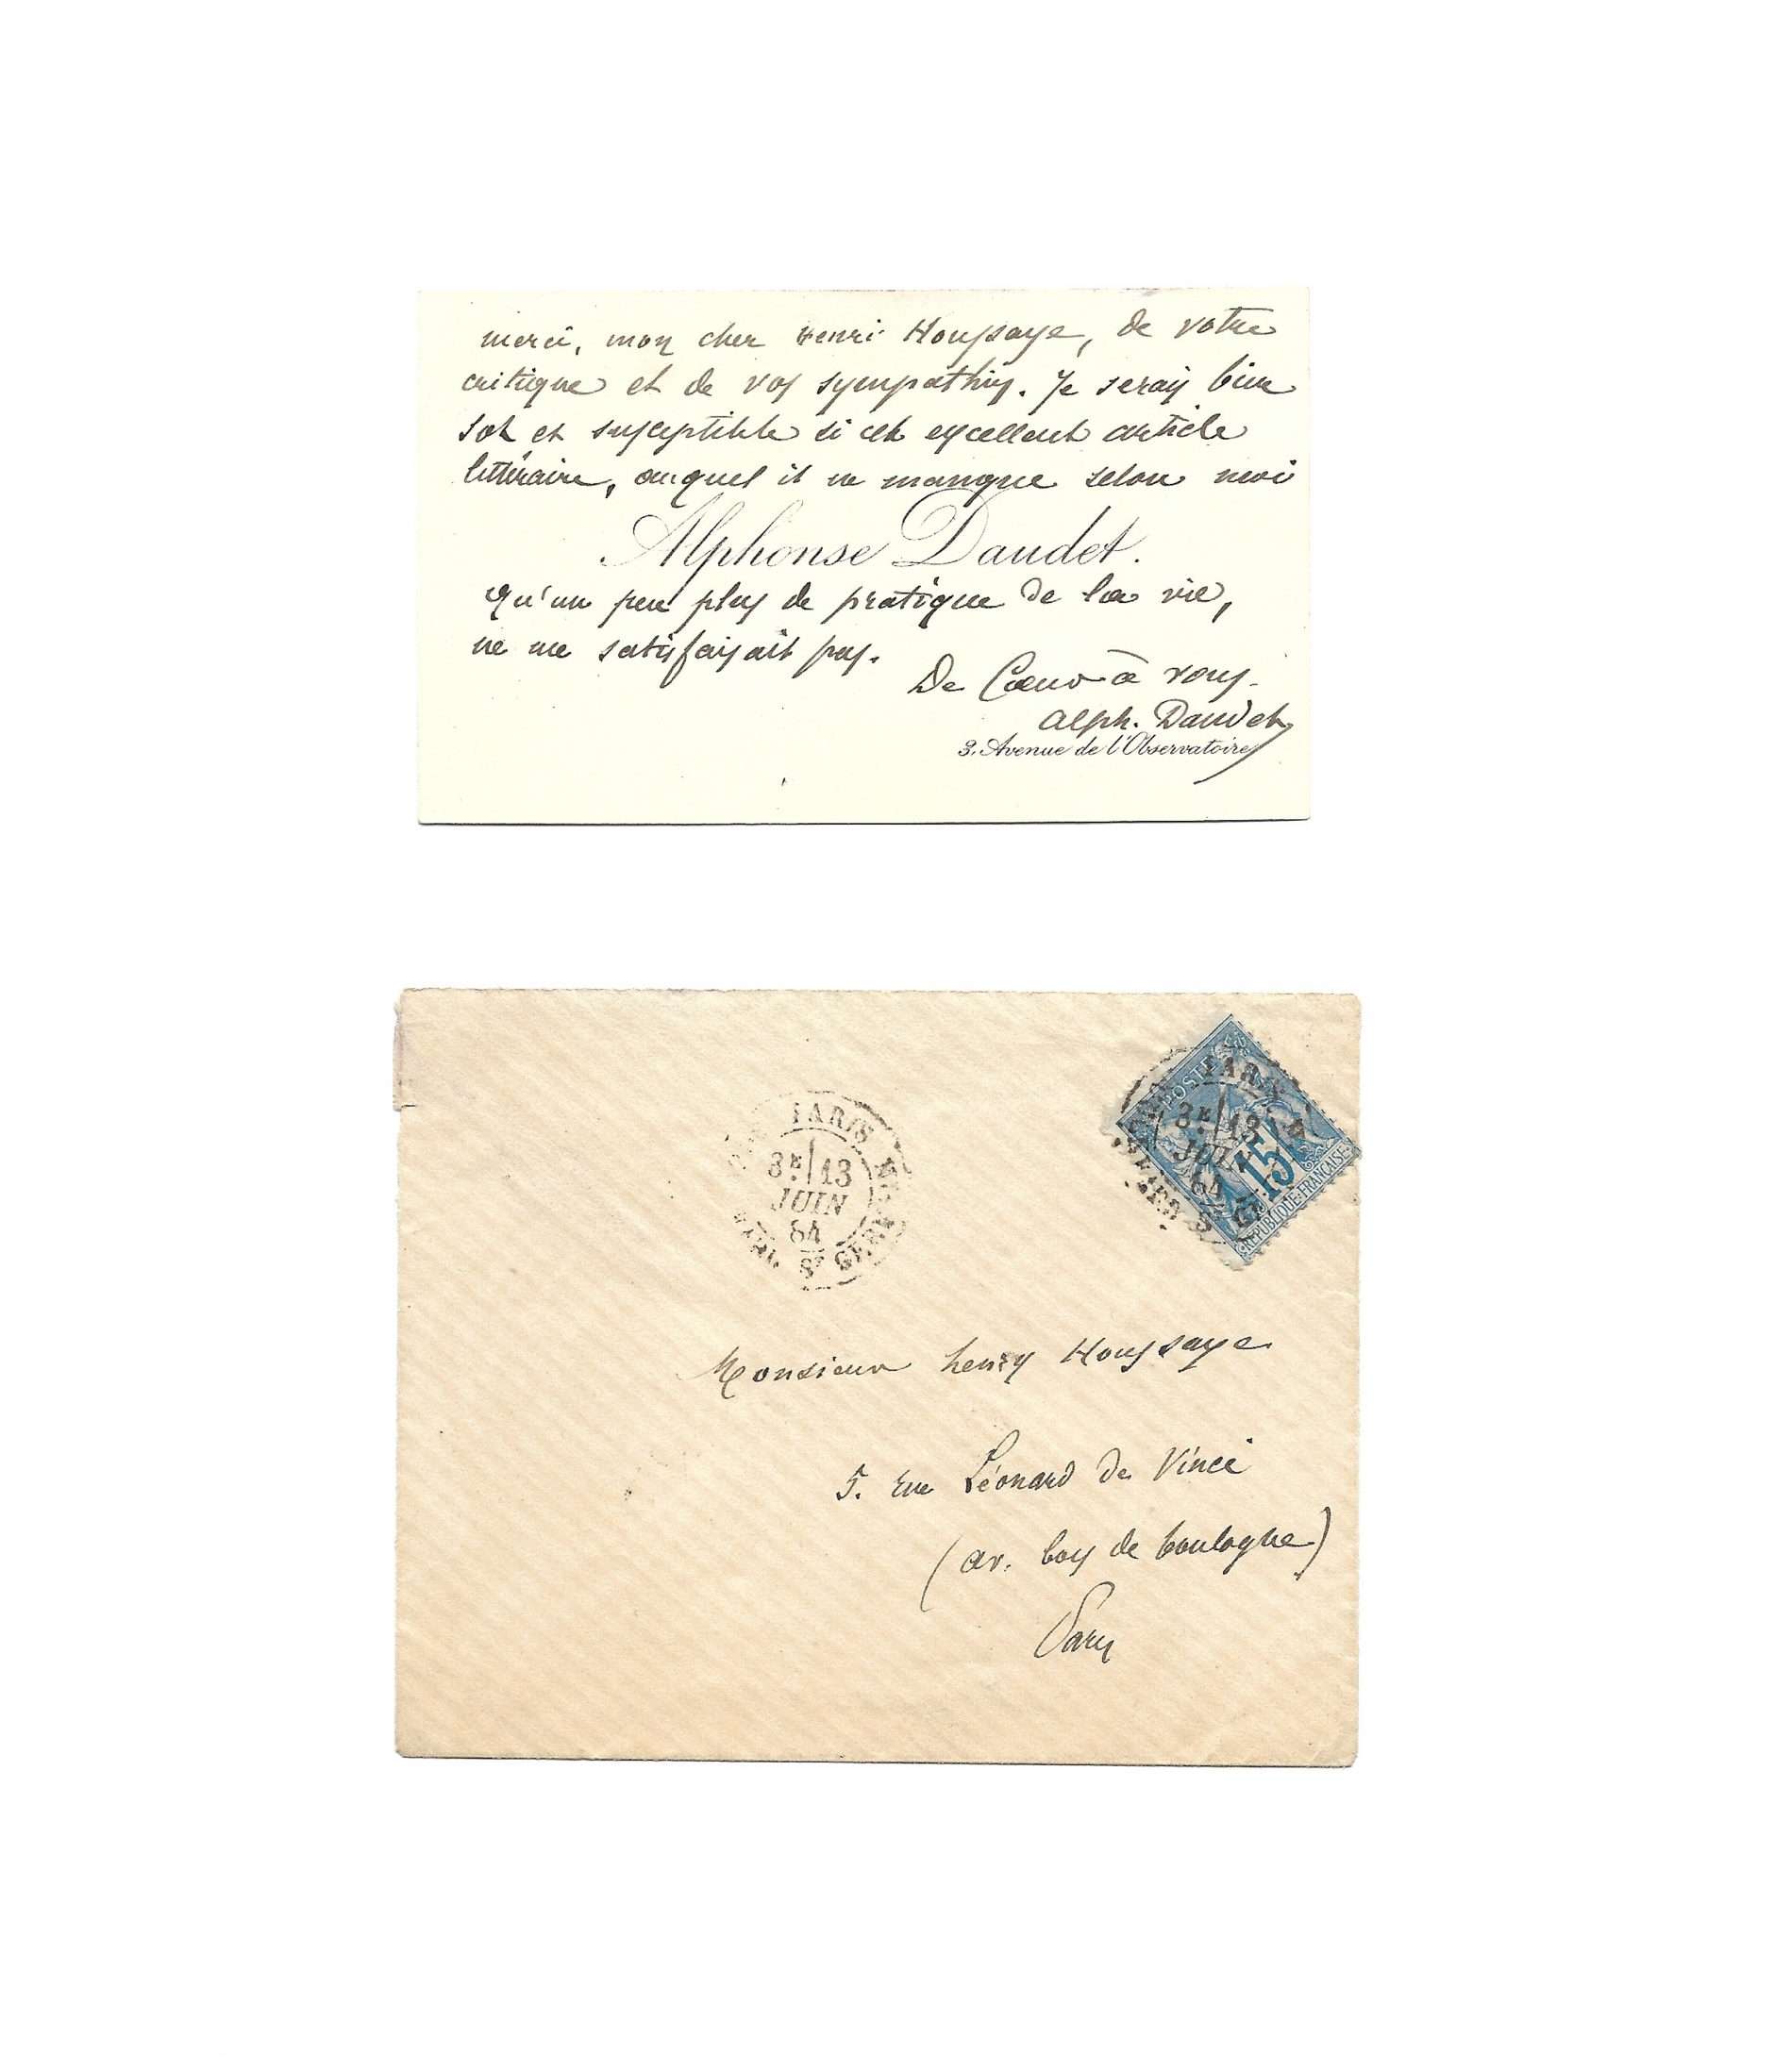 merci, mon cher Henri Houssaye, de votre
critique et de vos sympathies. Je serais bien
sot et susceptible si cet excellent article
littéraire, auquel il ne manque selon moi
Alphonse Daudet.
qu'un peu plus de pratique de la vie,
ne me satisfaisait pas.
De Coeur à vous.
Alph. Daudet
3, Avenue de l'Observatoire
POSTES
PARIS
3E 13
JUIN
84
15
REPUBLIQUE FRANÇAISE
PARIS
3E 13
JUIN
84
Bd St GERMAIN
Monsieur henry Houssaye
5. rue Léonard de Vinci
(av. bois de boulogne)
Paris